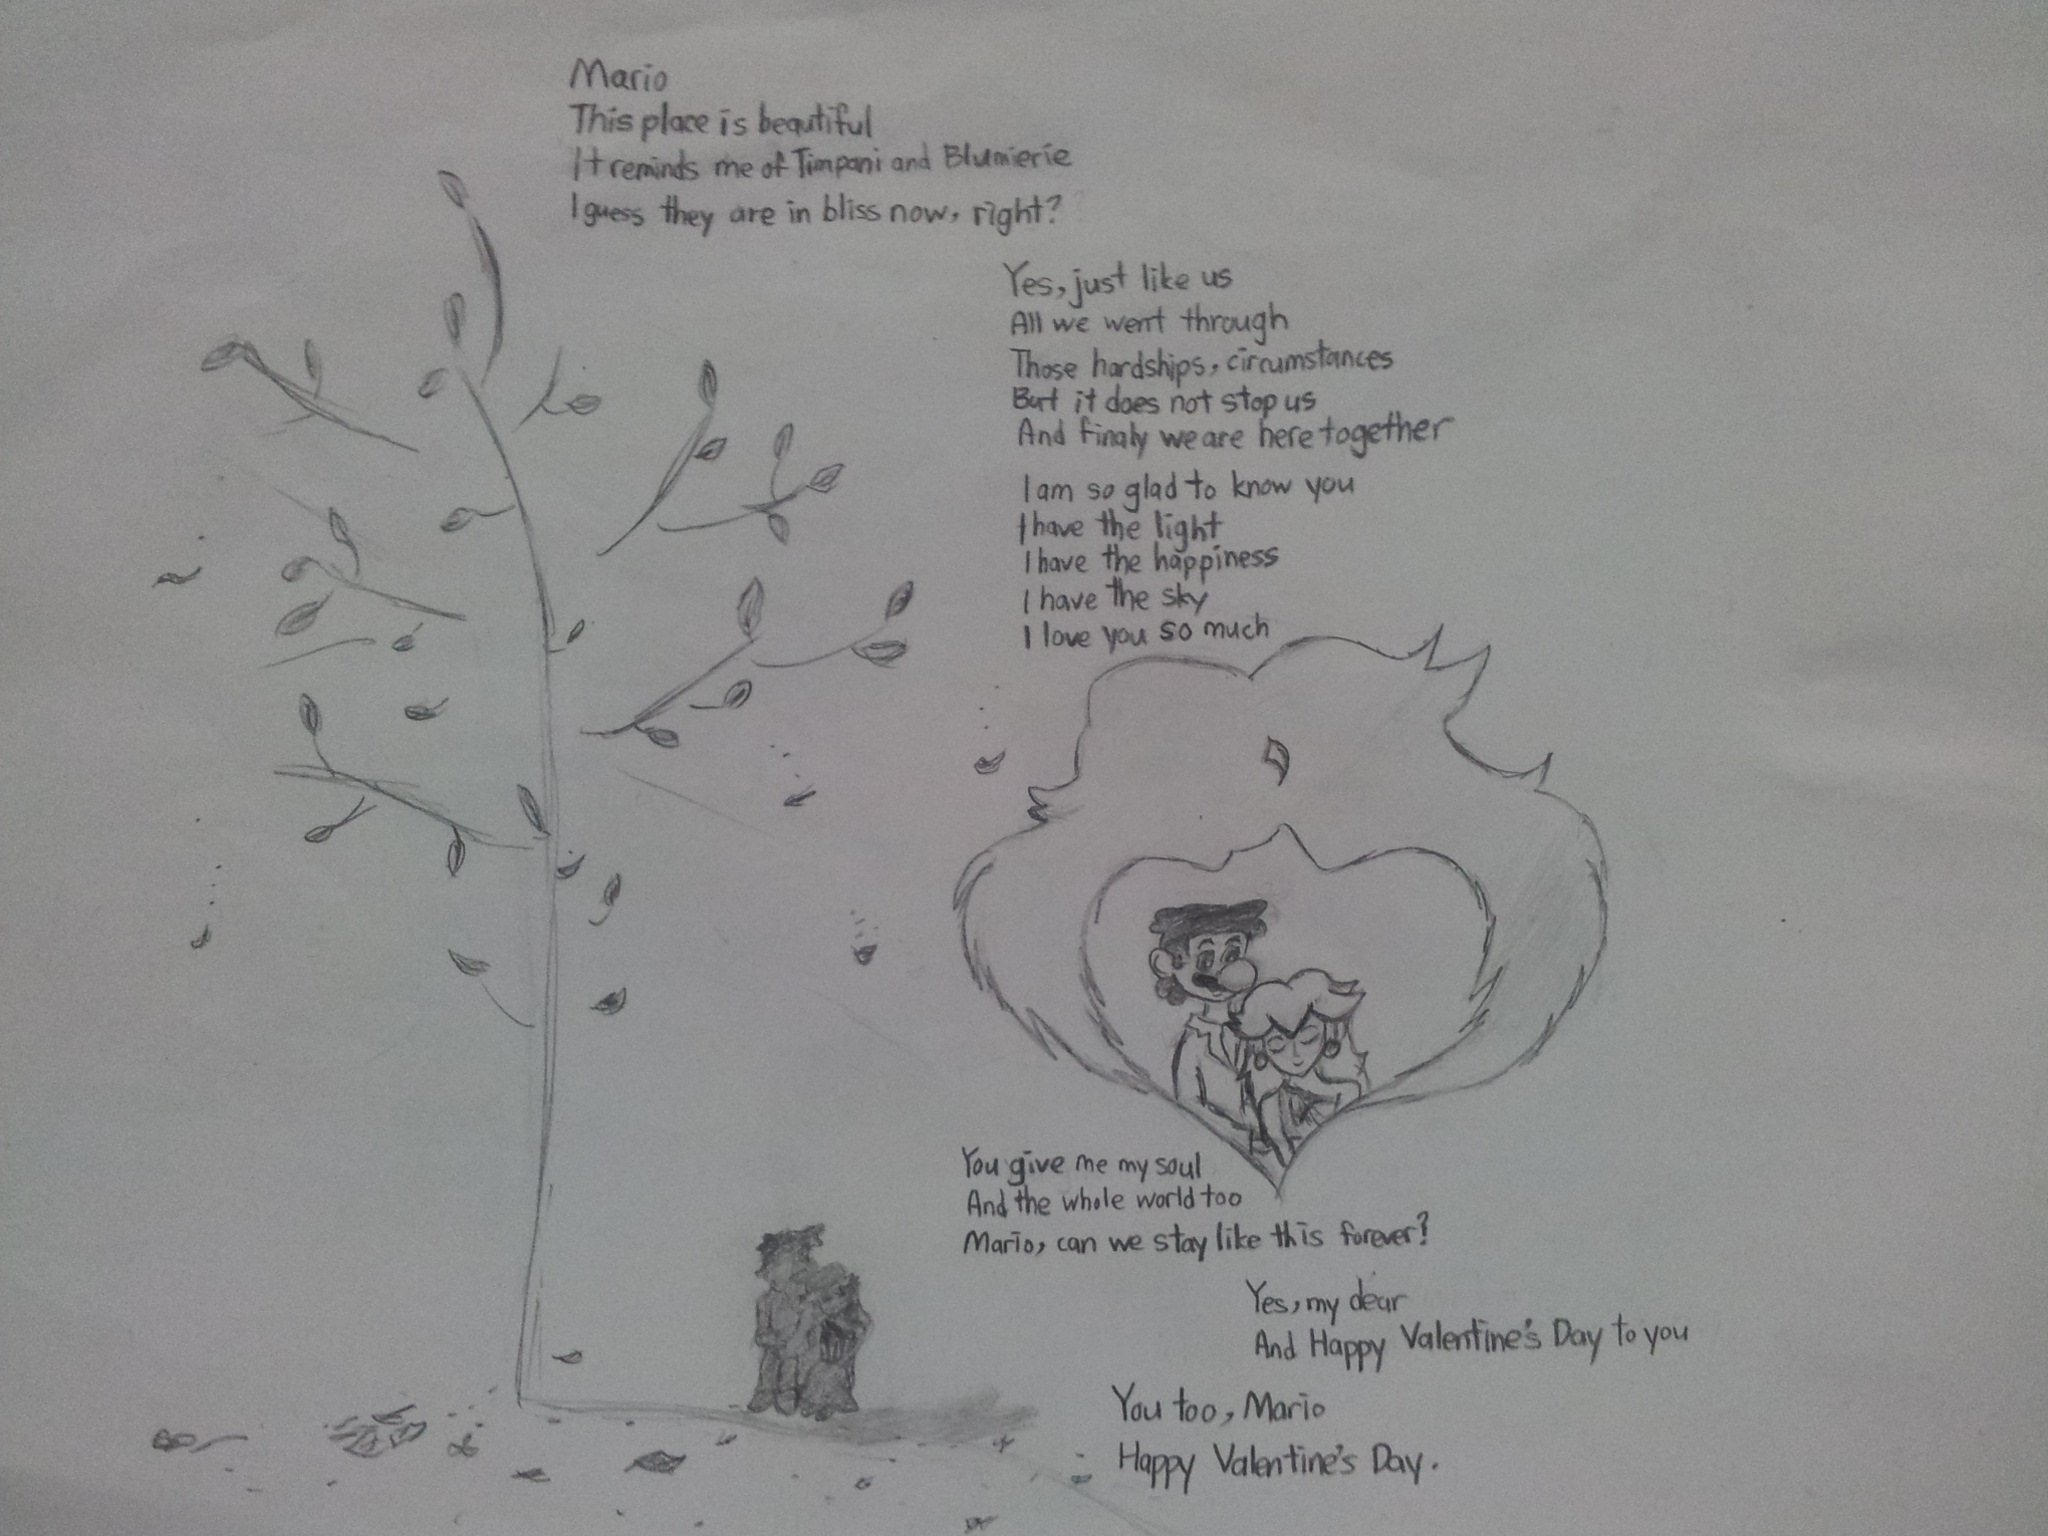 Mario
This place is beautiful
It reminds me of Timpani and Blumierie
I guess they are in bliss now, right?
Yes, just like us
All we went through
Those hardships, circumstances
But it does not stop us
And finaly we are here together
I am so glad to know you
I have the light
I have the happiness
I have the sky
I love you so much
You give me my soul
And the whole world too
Mario, can we stay like this forever?
Yes, my dear
And Happy Valentine's Day to you
You too, Mario
Happy Valentine's Day.